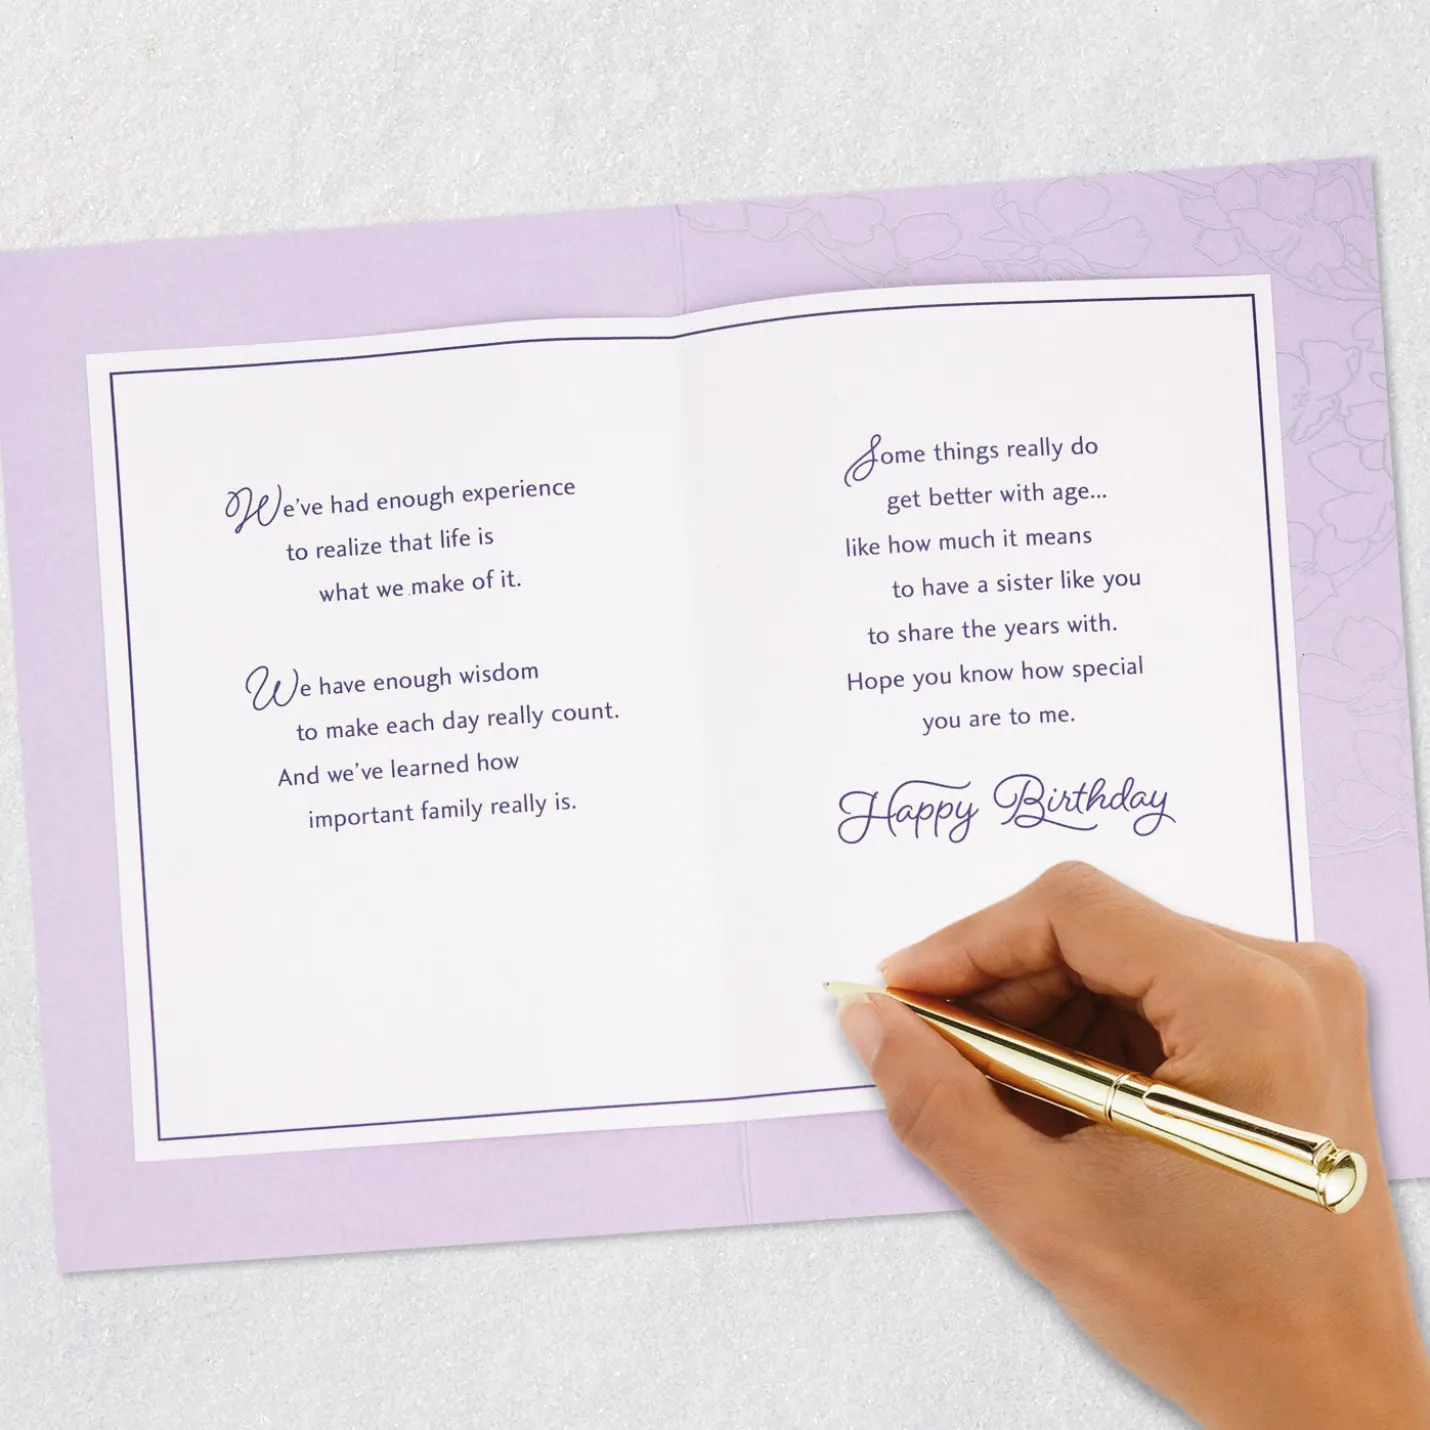 We've had enough experience
to realize that life is
what we make of it.
We have enough wisdom
to make each day really count.
And we've learned how
important family really is.
Some things really do
get better with age...
like how much it means
to have a sister like you
to share the years with.
Hope you know how special
you are to me.
Happy Birthday